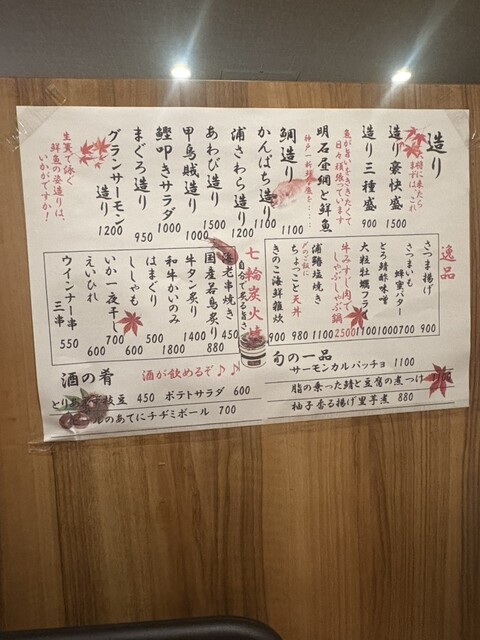 造り
造り 豪快盛 1500
造り 三種盛 900
魚が旨いときききたくて
日々頑張っています
明石昼網と鮮魚
鯛造り 1100
かんぱち造り 1100
浦さわら造り 1200
あわび造り 1500
甲烏賊造り 1000
鰹叩きサラダ 1000
まぐろ造り 950
グランサーモン造り 1200
生簀で泳ぐ
鮮魚の姿造りは、
いかがですか!
逸品
さつま揚げ 900
さつまいも 蜂蜜バター 700
とろ鯖酢味噌 1000
大粒牡蠣フライ 1100
牛みすじ肉で
しゃぶしゃぶ鍋 2500
浦鰆塩焼き 1100
〆のご飯に
ちょこっと天丼 980
きのこ海鮮雑炊 900
七輪炭火焼
自分で炙る旨さ
海老串焼き 450
国産若鳥炙り 880
牛タン炙り 1400
和牛かいのみ 1800
はまぐり 500
ししゃも 700
いか一夜干し 600
えいひれ 600
ウインナー串 三串 550
旬の一品
サーモンカルパッチョ 1100
脂の乗った鯖と豆腐の煮つけ
柚子香る揚げ里芋煮 880
酒の肴
酒が飲めるぞ♪♪
枝豆 450 ポテトサラダ 600
のあてにチヂミボール 700